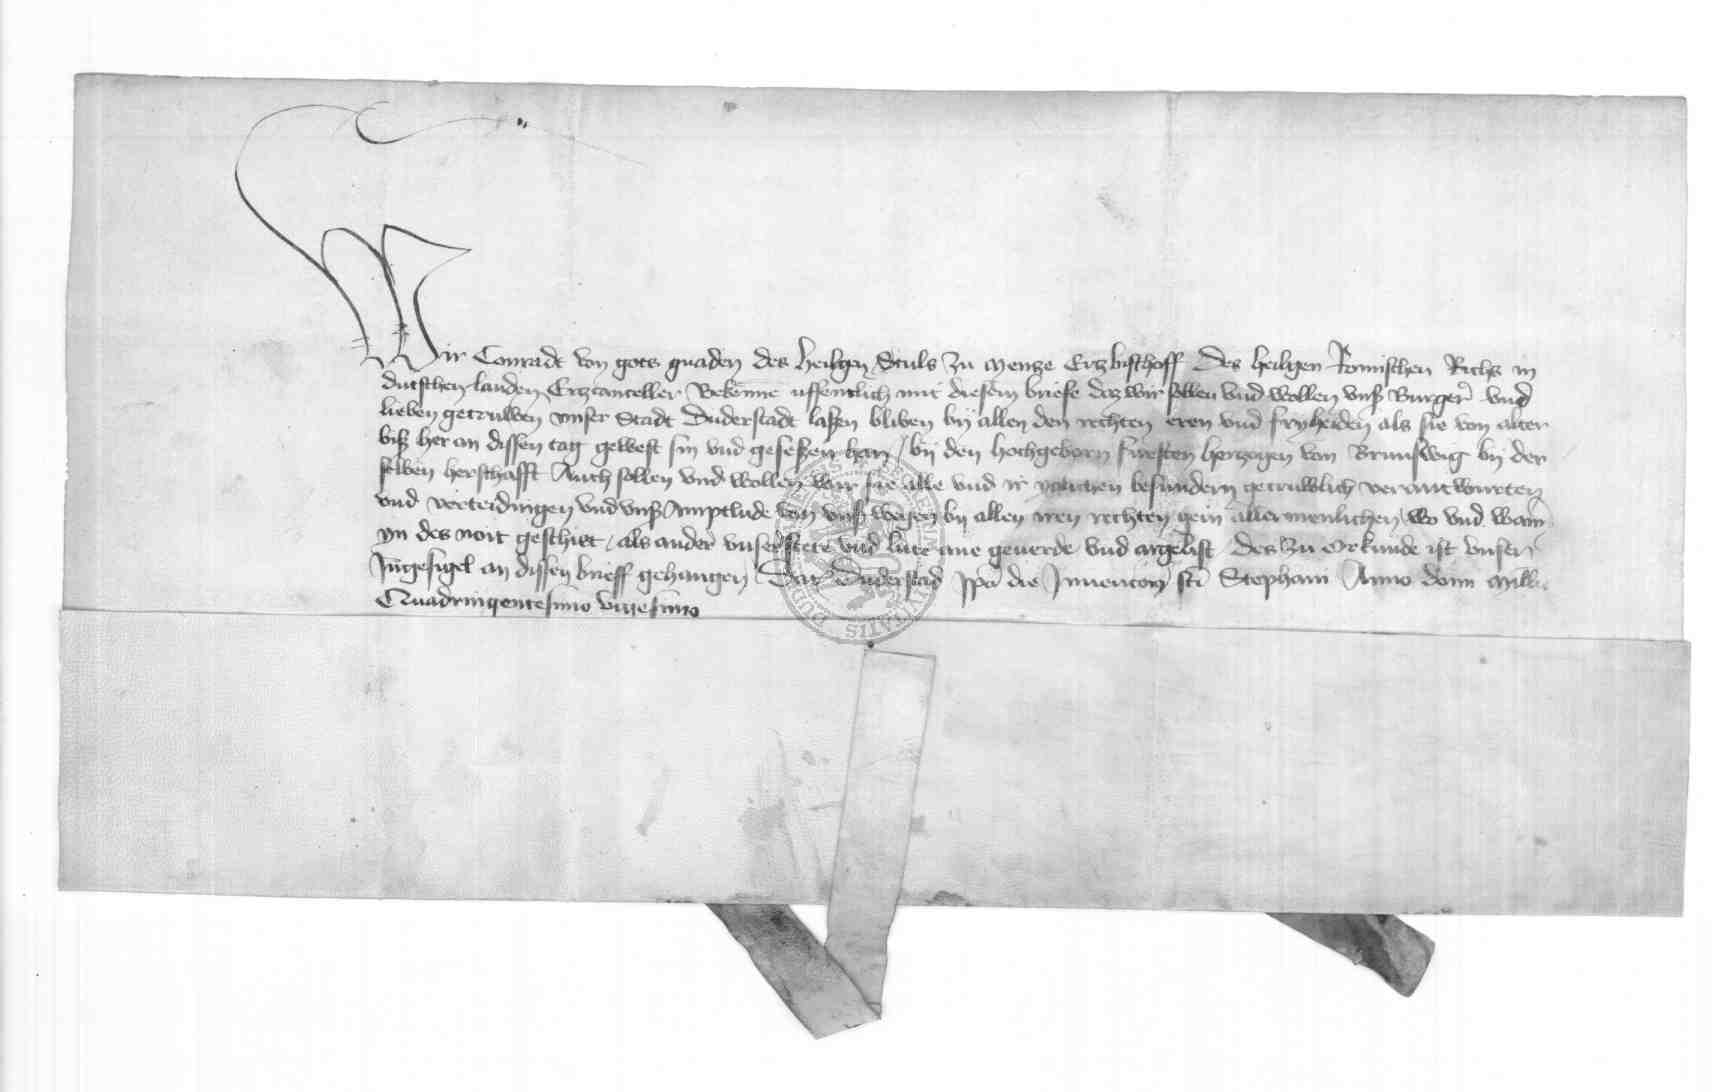 Wir Conradt von gots gnaden des heilgen Stuls zu Mentze Ertzbisthoff Des heiligen Romischen Richs in
dutschen landen Ertzcanceller Bekenne uffentlich mit diesem briefe daz wir sollen vnd wollen vnß Burger vnd
lieben getruwen vnser Stadt Duderstadt laßen bliben by allen den rechten eren vnd fryheiden als sie von alter
biß her an dissen tag gewest sin vnd geseßen han / by den hochgeborn fursten hertzogen von Brunswig by der
selben herschafft Auch sollen vnd wollen wir sie alle vnd ir besundern getruwlich verantwurten
vnd verteidingen vnd vnß Amptlude von vnß wegen by allen iren rechten gein allermenlichen / wo vnd wann
yn des noit geschiet / als ander vnser stete vnd lute ane geuerde vnd argelist Des zu Orkunde ist vnser
Ingesigel an dissen brieff gehangen Dat Duderstad ipa die Inuencom sti Stephani Anno domi Mille
Quadringentesimo vicesimo